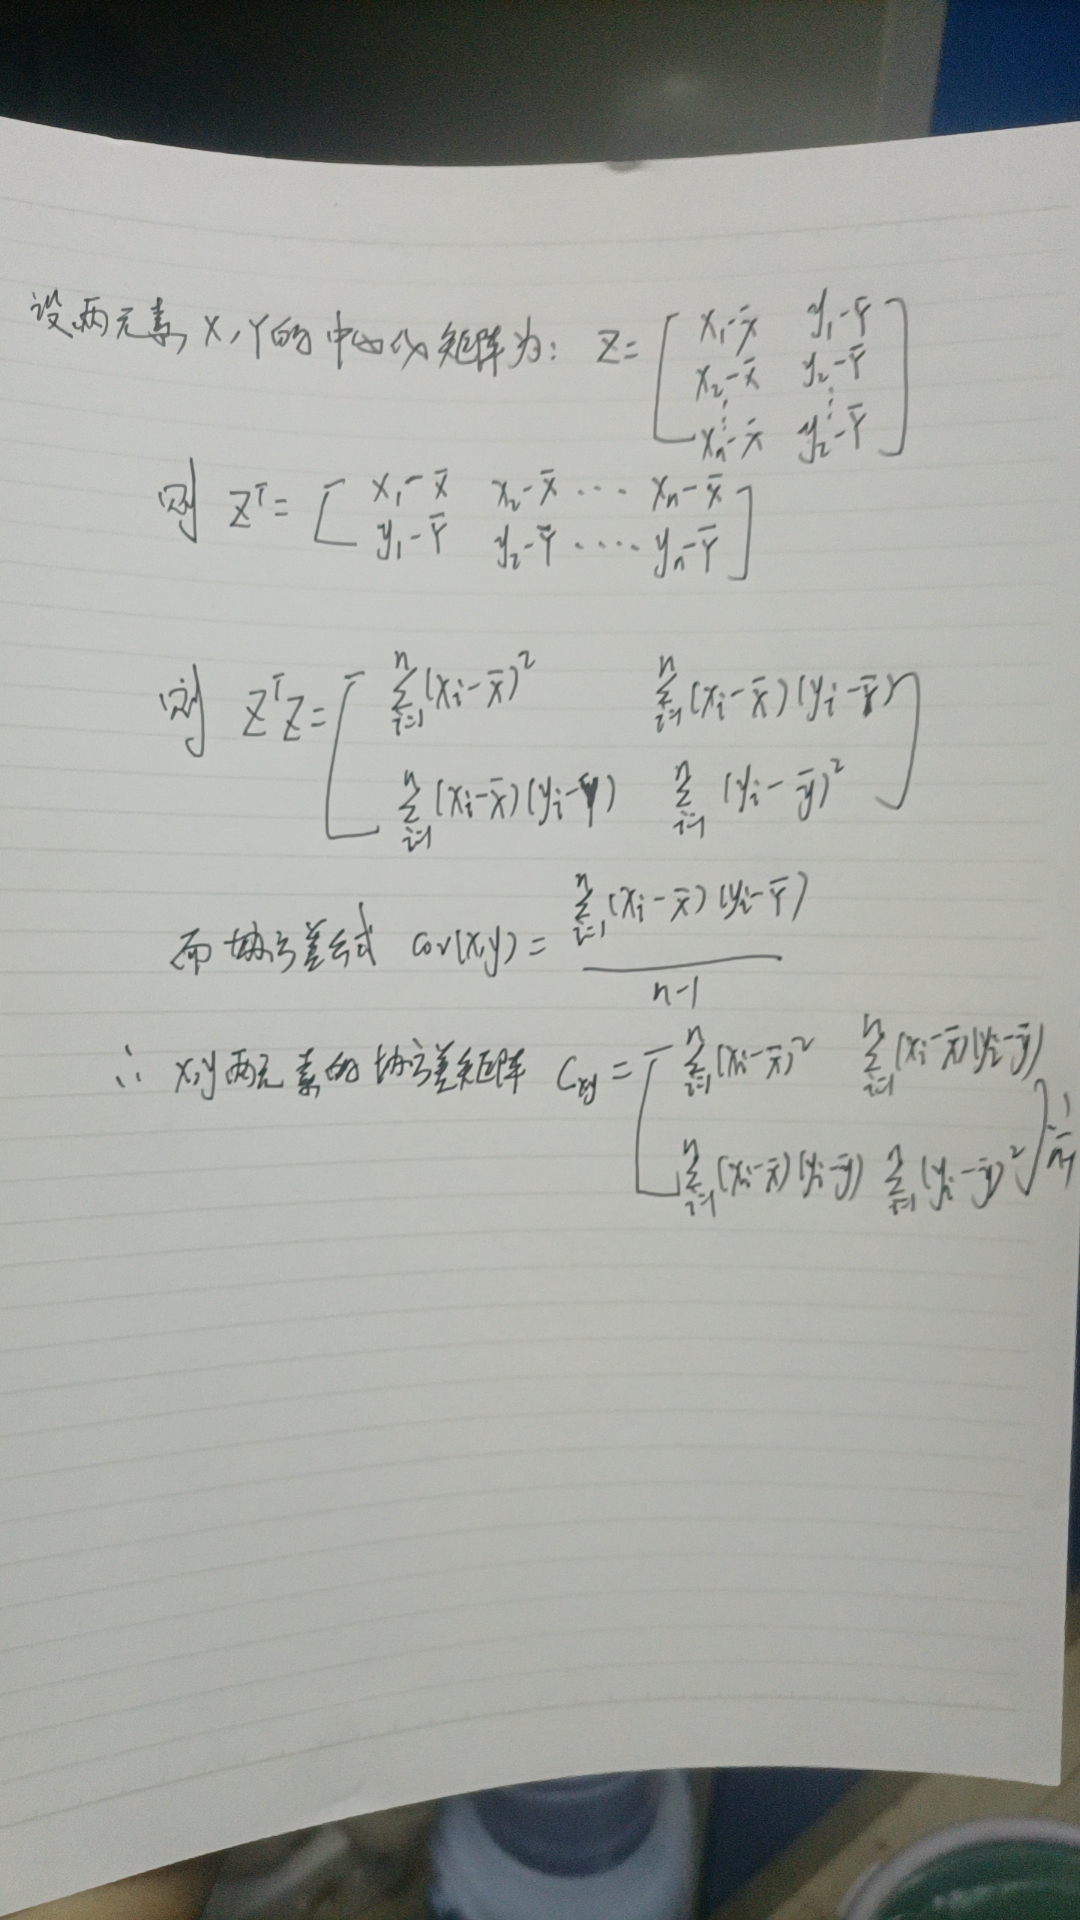 设两元素 X,Y的中心化矩阵为: Z= [ x₁-x̄ y₁-Ȳ
x₂-x̄ y₂-Ȳ
⋮ ⋮
xₙ-x̄ y₂-Ȳ ]
则 Zᵀ= [ x₁-x̄ x₂-x̄ ··· xₙ-x̄
y₁-Ȳ y₂-Ȳ ···· yₙ-Ȳ ]
则 ZᵀZ= [ ∑ⁿᵢ₌₁(xᵢ-x̄)² ∑ⁿᵢ₌₁(xᵢ-x̄)(yᵢ-Ȳ)
∑ⁿᵢ₌₁(xᵢ-x̄)(yᵢ-Ȳ) ∑ⁿᵢ₌₁(yᵢ-ȳ)² ]
而协方差公式 cov(x,y)= ∑ⁿᵢ₌₁(xᵢ-x̄)(yᵢ-Ȳ)
n-1
∴ x,y两元素的协方差矩阵 Cxy= [ ∑ⁿᵢ₌₁(xᵢ-x̄)² ∑ⁿᵢ₌₁(xᵢ-x̄)(yᵢ-ȳ)
∑ⁿᵢ₌₁(xᵢ-x̄)(yᵢ-ȳ) ∑ⁿᵢ₌₁(yᵢ-ȳ)² ]·1/n-1